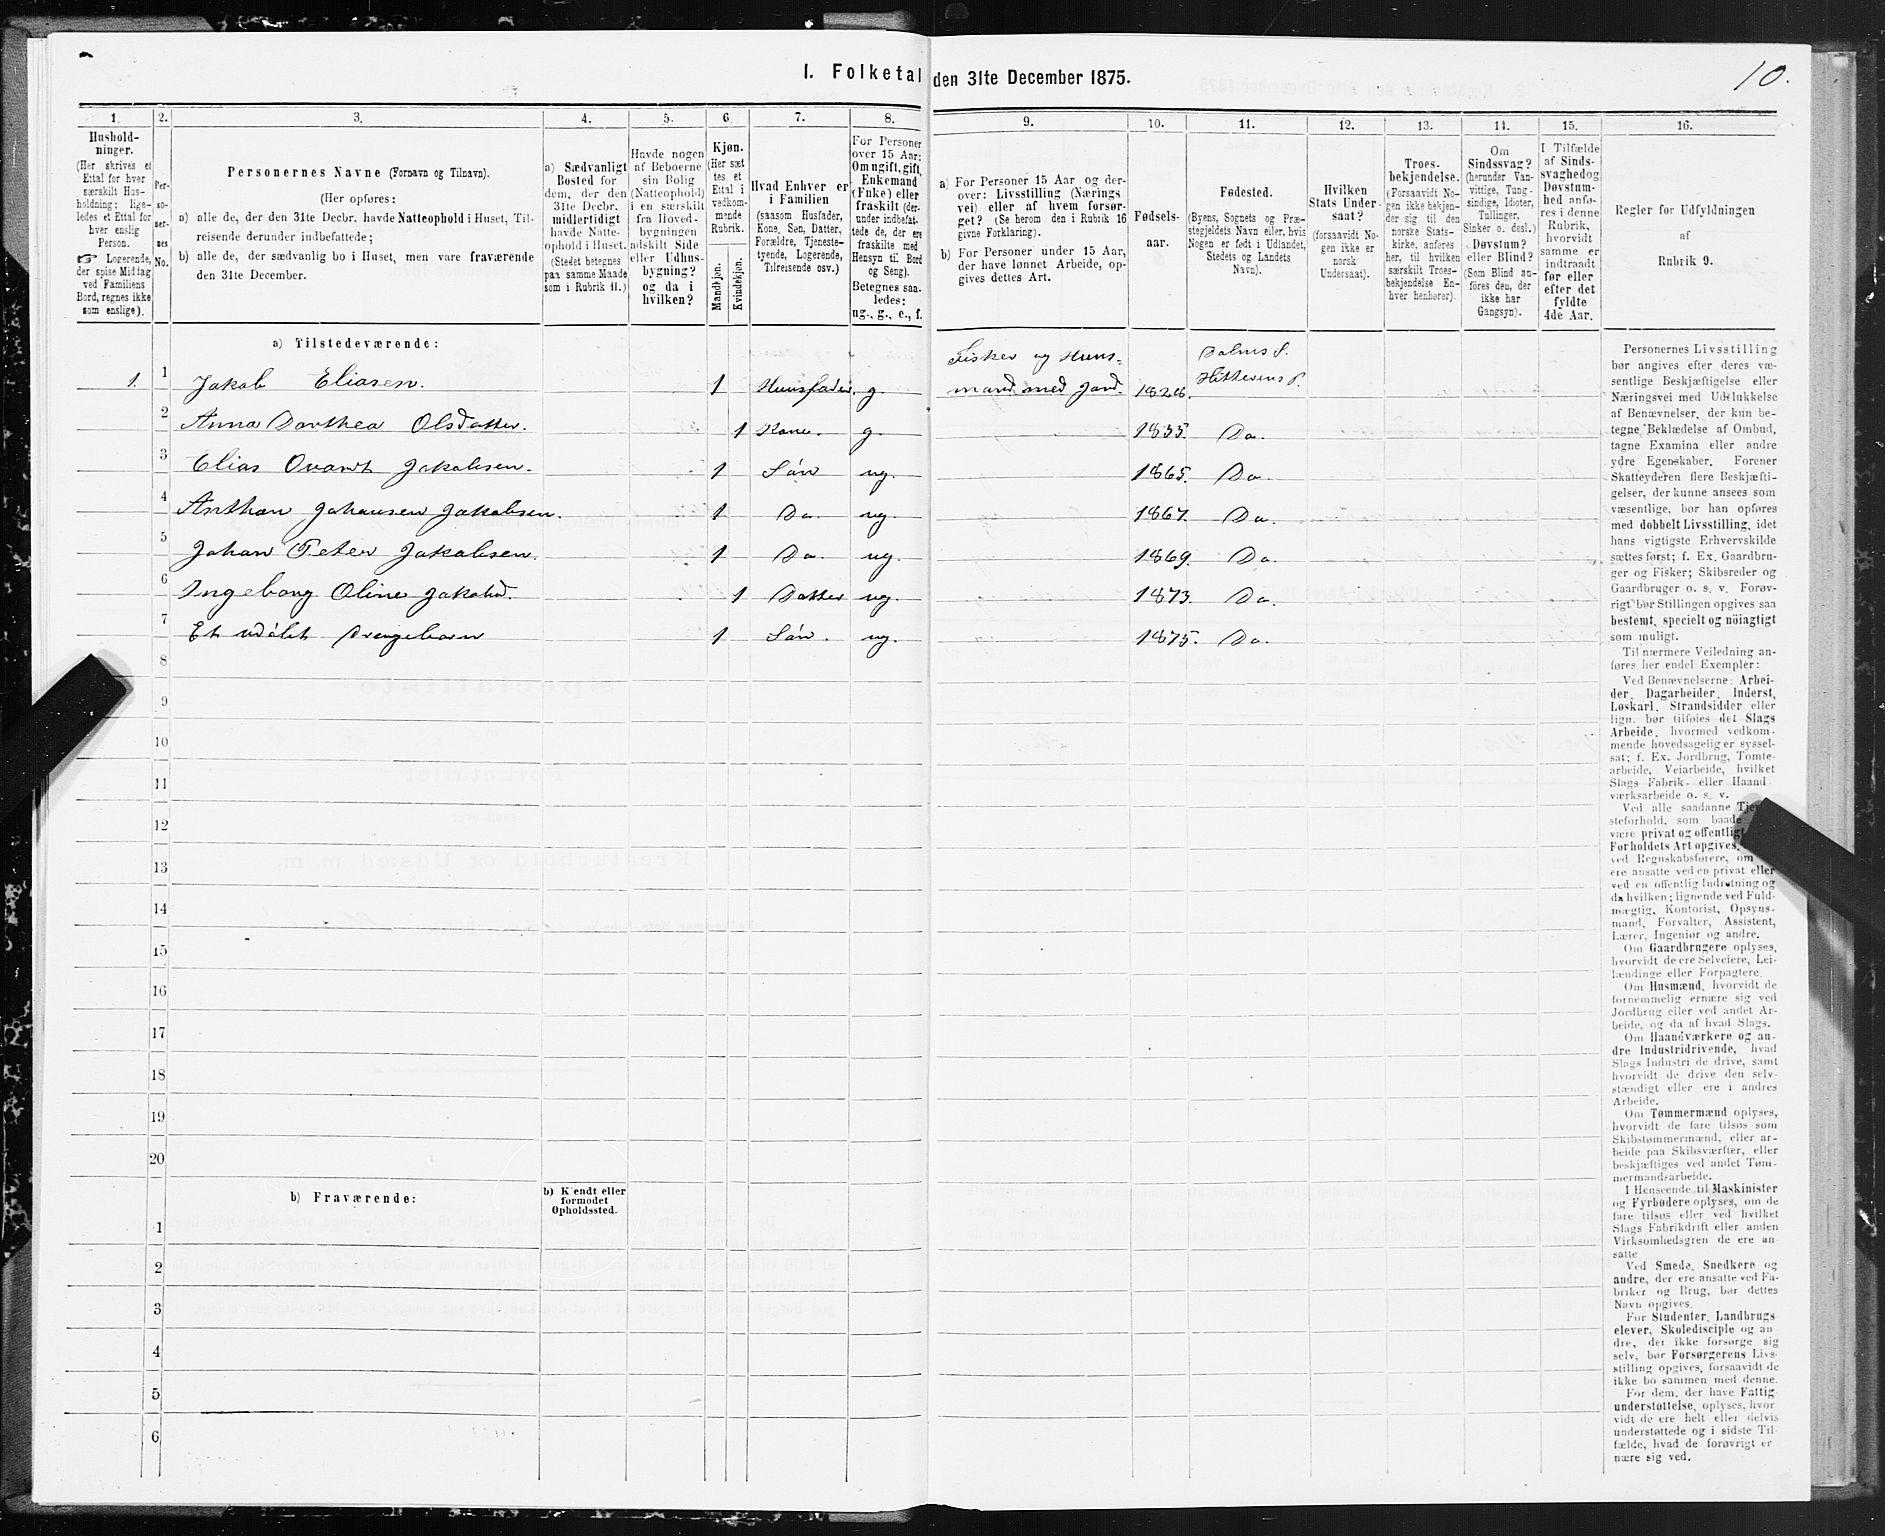 1. Folketal den 31te December 1875.
10.
1.
Hushold-
ninger.
(Her skrives et
Ettal for hver
særskilt Hus-
holdning; lige-
ledes et Ettal for
hver enslig
Person.
☞ Logerende,
der spise Middag
ved Familiens
Bord, regnes ikke
som enslige).
2.
Per-
so-
ner-
nes
No.
3.
Personernes Navne (Fornavn og Tilnavn).
(Her opføres:
a) alle de, der den 31te Decbr. havde Natteophold i Huset, Til-
reisende derunder indbefattede;
b) alle de, der sædvanlig bo i Huset, men vare fraværende
den 31te December.
4.
a) Sædvanligt
Bosted for
dem, der den
31te Decbr.
midlertidigt
havde Natte-
ophold i Huset.
(Stedet betegnes
paa samme Maade
som i Rubrik 11.)
5.
Havde nogen
af Beboerne
sin Bolig
(Natteophold)
i en særskilt
fra Hoved-
bygningen
adskilt Side
eller Udhus-
bygning?
og da i
hvilken?
6.
Kjøn.
(Her sæt-
tes et
Ettal i
vedkom-
mende
Rubrik.
Mandkjøn.
Kvindekjøn.
7.
Hvad Enhver er
i Familien
(saasom Husfader,
Kone, Søn, Datter,
Forældre, Tjeneste-
tyende, Logerende,
Tilreisende osv.)
8.
For Personer
over 15 Aar:
Om ugift, gift,
Enkemand
(Enke) eller
fraskilt (der-
under indbefat-
tede de, der ere
fraskilte med
Hensyn til Bord
og Seng).
Betegnes saa-
ledes:
ug., g., e., f.
9.
a) For Personer 15 Aar og der-
over: Livsstilling (Nærings-
vei) eller af hvem forsør-
get? (Se herom den i Rubrik 16
givne Forklaring).
b) For Personer under 15 Aar,
der have lønnet Arbeide, op-
gives dettes Art.
10.
Fødsels-
aar.
11.
Fødested.
(Byens, Sognets og Præ-
stegjeldets Navn eller, hvis
Nogen er født i Udlandet,
Stedets og Landets
Navn).
12.
Hvilken
Stats Under-
saat?
(forsaavidt No-
gen ikke er
norsk
Undersaat).
13.
Troes-
bekjendelse.
(Forsaavidt No-
gen ikke bekjen-
der sig til den
norske Stats-
kirke, anføres
her, til hvilken
særskilt Troes-
bekjendelse En-
hver henhører).
14.
Om
Sindssvag?
(herunder Van-
vittige, Tung-
sindige, Idioter,
Tullinger,
Sinker o. desl.)
Døvstum?
eller Blind?
(Som Blind an-
føres den, der
ikke har
Gangsyn).
15.
I Tilfælde
af Sinds-
svaghed og
Døvstum-
hed anfø-
res i denne
Rubrik,
hvorvidt
samme er
indtraadt
før eller
efter det
fyldte
4de Aar.
16.
Regler før Udfyldningen
af
Rubrik 9.
a) Tilstedeværende:
1. 1 Jakob Eliasen. 1 Huusfader. g. Fisker og Huus-
mand med Jord. 1828. Dolms S.
Hitterens P.
2 Anna Dorthea Olsdatter. 1 Kone. g. 1835. Do.
3 Elias Ovardt Jakobsen. 1 Søn ug. 1865. Do.
4 Anthon Johansen Jakobsen. 1 Do. ug. 1867. Do.
5 Johan Peter Jakobsen. 1 Do. ug. 1869. Do.
6 Ingeborg Oline Jakobsd. 1 Datter ug. 1873. Do.
7 Et udøbt Drengebarn 1 Søn. ug. 1875. Do.
8
9
10
11
12
13
14
15
16
17
18
19
20
b) Fraværende:
b) Kjendt eller
formodet
Opholdssted.
1
2
3
4
5
6
Personernes Livsstilling
bør angives efter deres væ-
sentlige Beskjæftigelse eller
Næringsvei med Udelukkelse
af Benævnelser, der kun be-
tegne Beklædelse af Ombud,
tagne Examina eller andre
ydre Egenskaber. Forener
Skatteyderen flere Beskjæfti-
gelser, der kunne ansees som
væsentlige, bør han opføres
med dobbelt Livsstilling, idet
hans vigtigste Erhvervskilde
sættes først; f. Ex. Gaardbru-
ger og Fisker; Skibsreder og
Gaardbruger o. s. v. Forøv-
rigt bør Stillingen opgives saa
bestemt, specielt og nøiagtigt
som muligt.
Til nærmere Veiledning an-
føres her endel Exempler:
Ved Benævnelserne: Arbei-
der, Dagarbeider, Inderst,
Løskarl, Strandsidder eller
lign. bør tilføies det Slags
Arbeide, hvormed vedkom-
mende hovedsagelig er syssel-
sat; f. Ex. Jordbrug, Tomte-
arbeide, Veiarbeide, hvilket
Slags Fabrik- eller Haand-
værksarbeide o. s. v.
Ved alle saadanne
steforhold, som baade
være privat og offentligt
Forholdets Art opgives,
ved Regnskabsførere, om
ere ansatte ved en privat eller
ved en offentlig Indretning og
da hvilken; lignende ved Fuld-
mægtig, Kontorist, Opsyns-
mand, Forvalter, Assistent,
Lærer, Ingeniør og andre.
Om Gaardbrugere oplyses,
hvorvidt de ere Selveiere, Lei-
lændinge eller Forpagtere.
Om Husmænd, hvorvidt de
fornemmelig ernære sig ved
Jordbrug eller ved andet Ar-
beide, og da af hvad Slags.
Om Haandværkere og an-
dre Industridrivende, hvad
Slags Industri de drive, samt
hvorvidt de drive den selv-
stændigt eller ere i andres
Arbeide.
Om Tømmermænd oplyses,
hvorvidt de fare tilsøs som
Skibstømmermænd, eller ar-
beide paa Skibsværfter, eller
beskjæftiges ved andet Tøm-
mermandsarbeide.
I Henseende til Maskinister
og Fyrbødere oplyses, om de
fare tilsøs eller ved hvilket
Slags Fabrikdrift eller anden
Virksomhedsgren de ere an-
satte.
Ved Smede, Snedkere og
andre, der ere ansatte ved Fa-
briker og Brug, bør dettes
Navn opgives.
For Studenter, Landbrugs-
elever, Skoledisciple og an-
dre, der ikke forsørge sig
selv, bør Forsørgerens Livs-
stilling opgives, forsaavidt de
ikke bo sammen med denne.
For dem, der have Fattig-
understøttelse, oplyses, hvor-
vidt de ere helt eller delvis
understøttede og i sidste Til-
fælde, hvad de forøvrigt er-
nære sig ved.